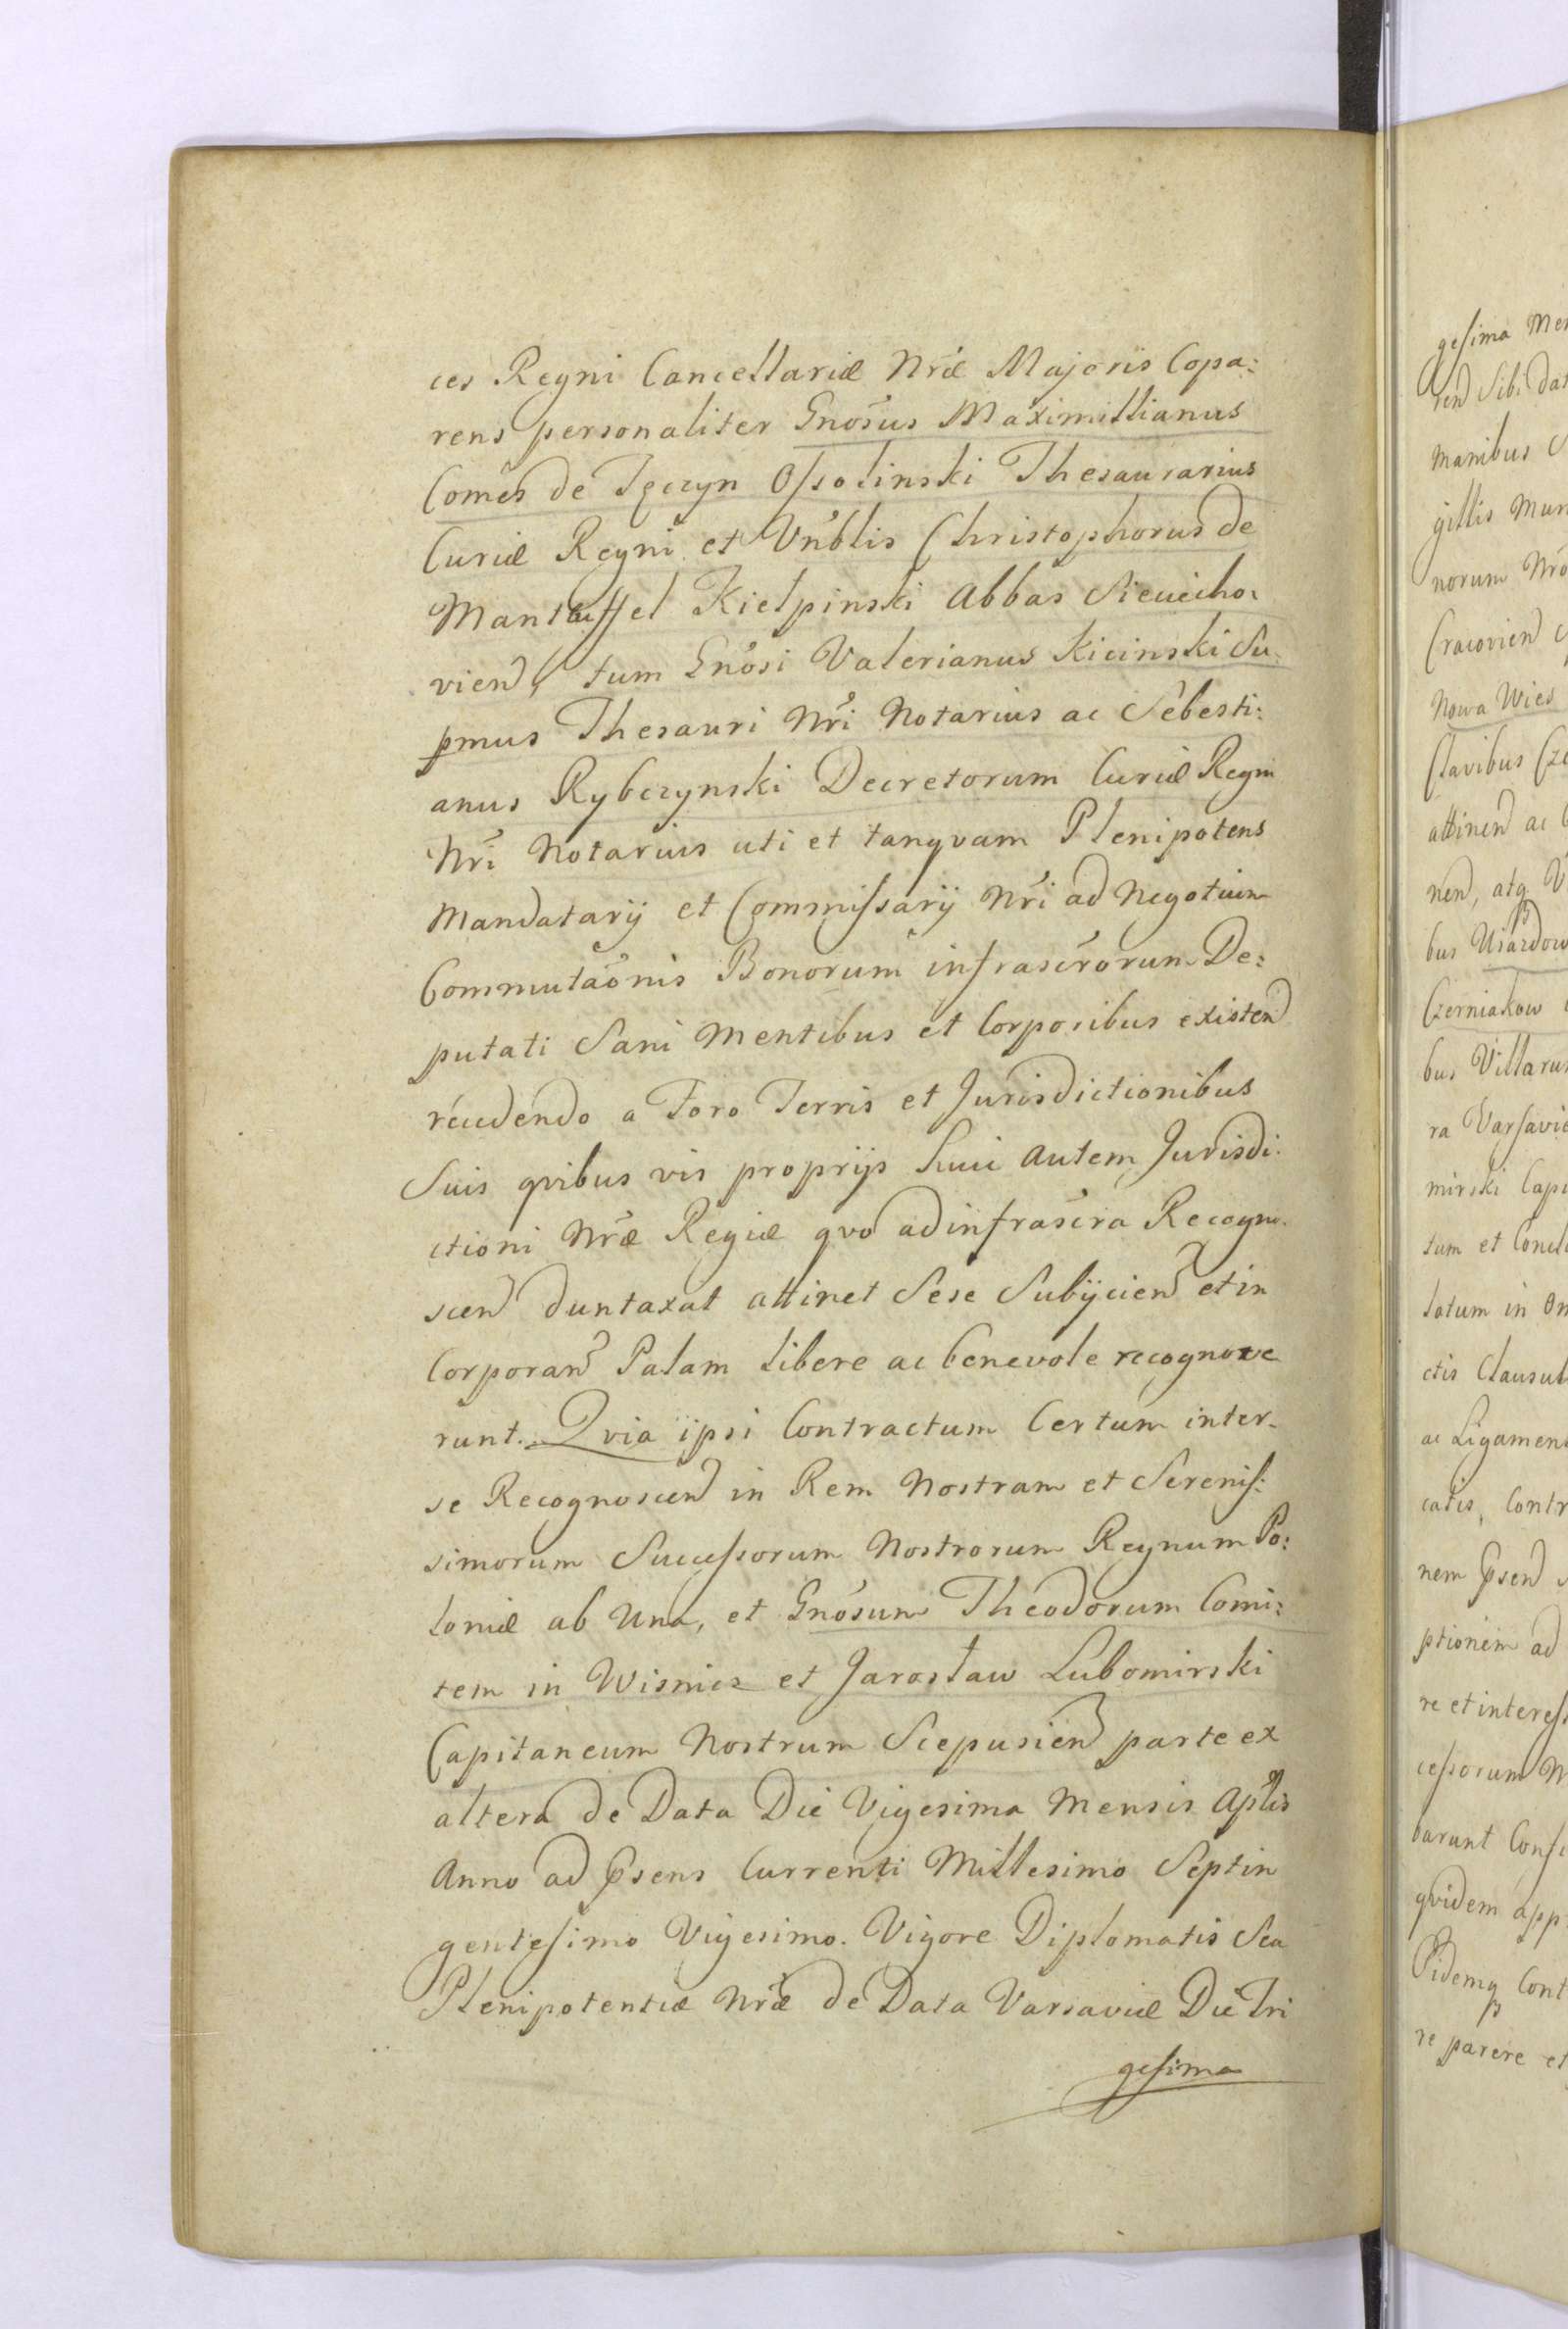 ces Regni Cancellariæ Nr̃æ Majoris Copa:
rens personaliter Gnõsus Maximillianus
Comes de Tęczyn Ossolinski Thesaurarius
Curiæ Regni et Vnb̃lis Christophorus de
Manteuffel Kiełpinski Abbas Sieciecho:
vien̄, tum Gnõsi Valerianus Kicinski Su-
pmus Thesauri Nr̃i Notarius ac Sebesti:
anus Rybczynski Decretorum Curiæ Regni
Nr̃i Notarius uti et tanqvam Plenipotens
Mandatarij et Commissarij Nr̃i ad Negotium
Commutaõnis Bonorum infrascr̃orum De:
putati Sani Mentibus et Corporibus existen̄
recedendo a Foro Terris et Jurisdictionibus
Suis qvibus vis proprijs huic autem Jurisdi:
ctioni Nr̃æ Regiæ qvo ad infrascr̃a Recogno-
scen̄ duntaxat attinet Sese Subijcien̄ et in
Corporan̄ Palam libere ac benevole recognove
runt. Qvia ijpsi Contractum Certum inter-
se Recognoscen̄ in Rem Nostram et Serenis:
simorum Successorum Nostrorum Regnum Po:
loniæ ab Una, et Gnõsum Theodorum Comi:
tem in Wisnicz et Jarosław Lubomirski
Capitaneum Nostrum Scepusien̄ parte ex
altera de Data Die Vigesima Mensis Aplis
Anno ad P̃sens Currenti Millesimo Septin
gentesimo Vigesimo. Vigore Diplomatis Seu
Plenipotentiæ Nr̃æ de Data Varsaviæ Die Tri
gesima
gesima
ren̄ Sibi
manibus
gillis
norum
Cracovien̄
Nowa Wies
Clavibus
attinen̄ ac
nen̄, atq
bus Uiazdow
Czerniakow
bus
ra
mirski
tum et
totum in
ctis
ac
catis,
nem p̃sen̄
ptionem ad
re et
cessorum
barunt
qvidem
Pidemq
re parere et